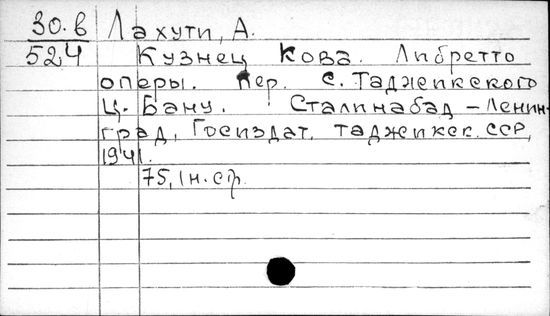 30.в Лахути, А.
524 Кузнец Кова. Либретто
оперы. Пер. с. Таджепкского
Ц. Бану. Сталинабад - Ленин-
град, Госиздат, таджепкск. ССР,
1941.
75, 1 н. стр.